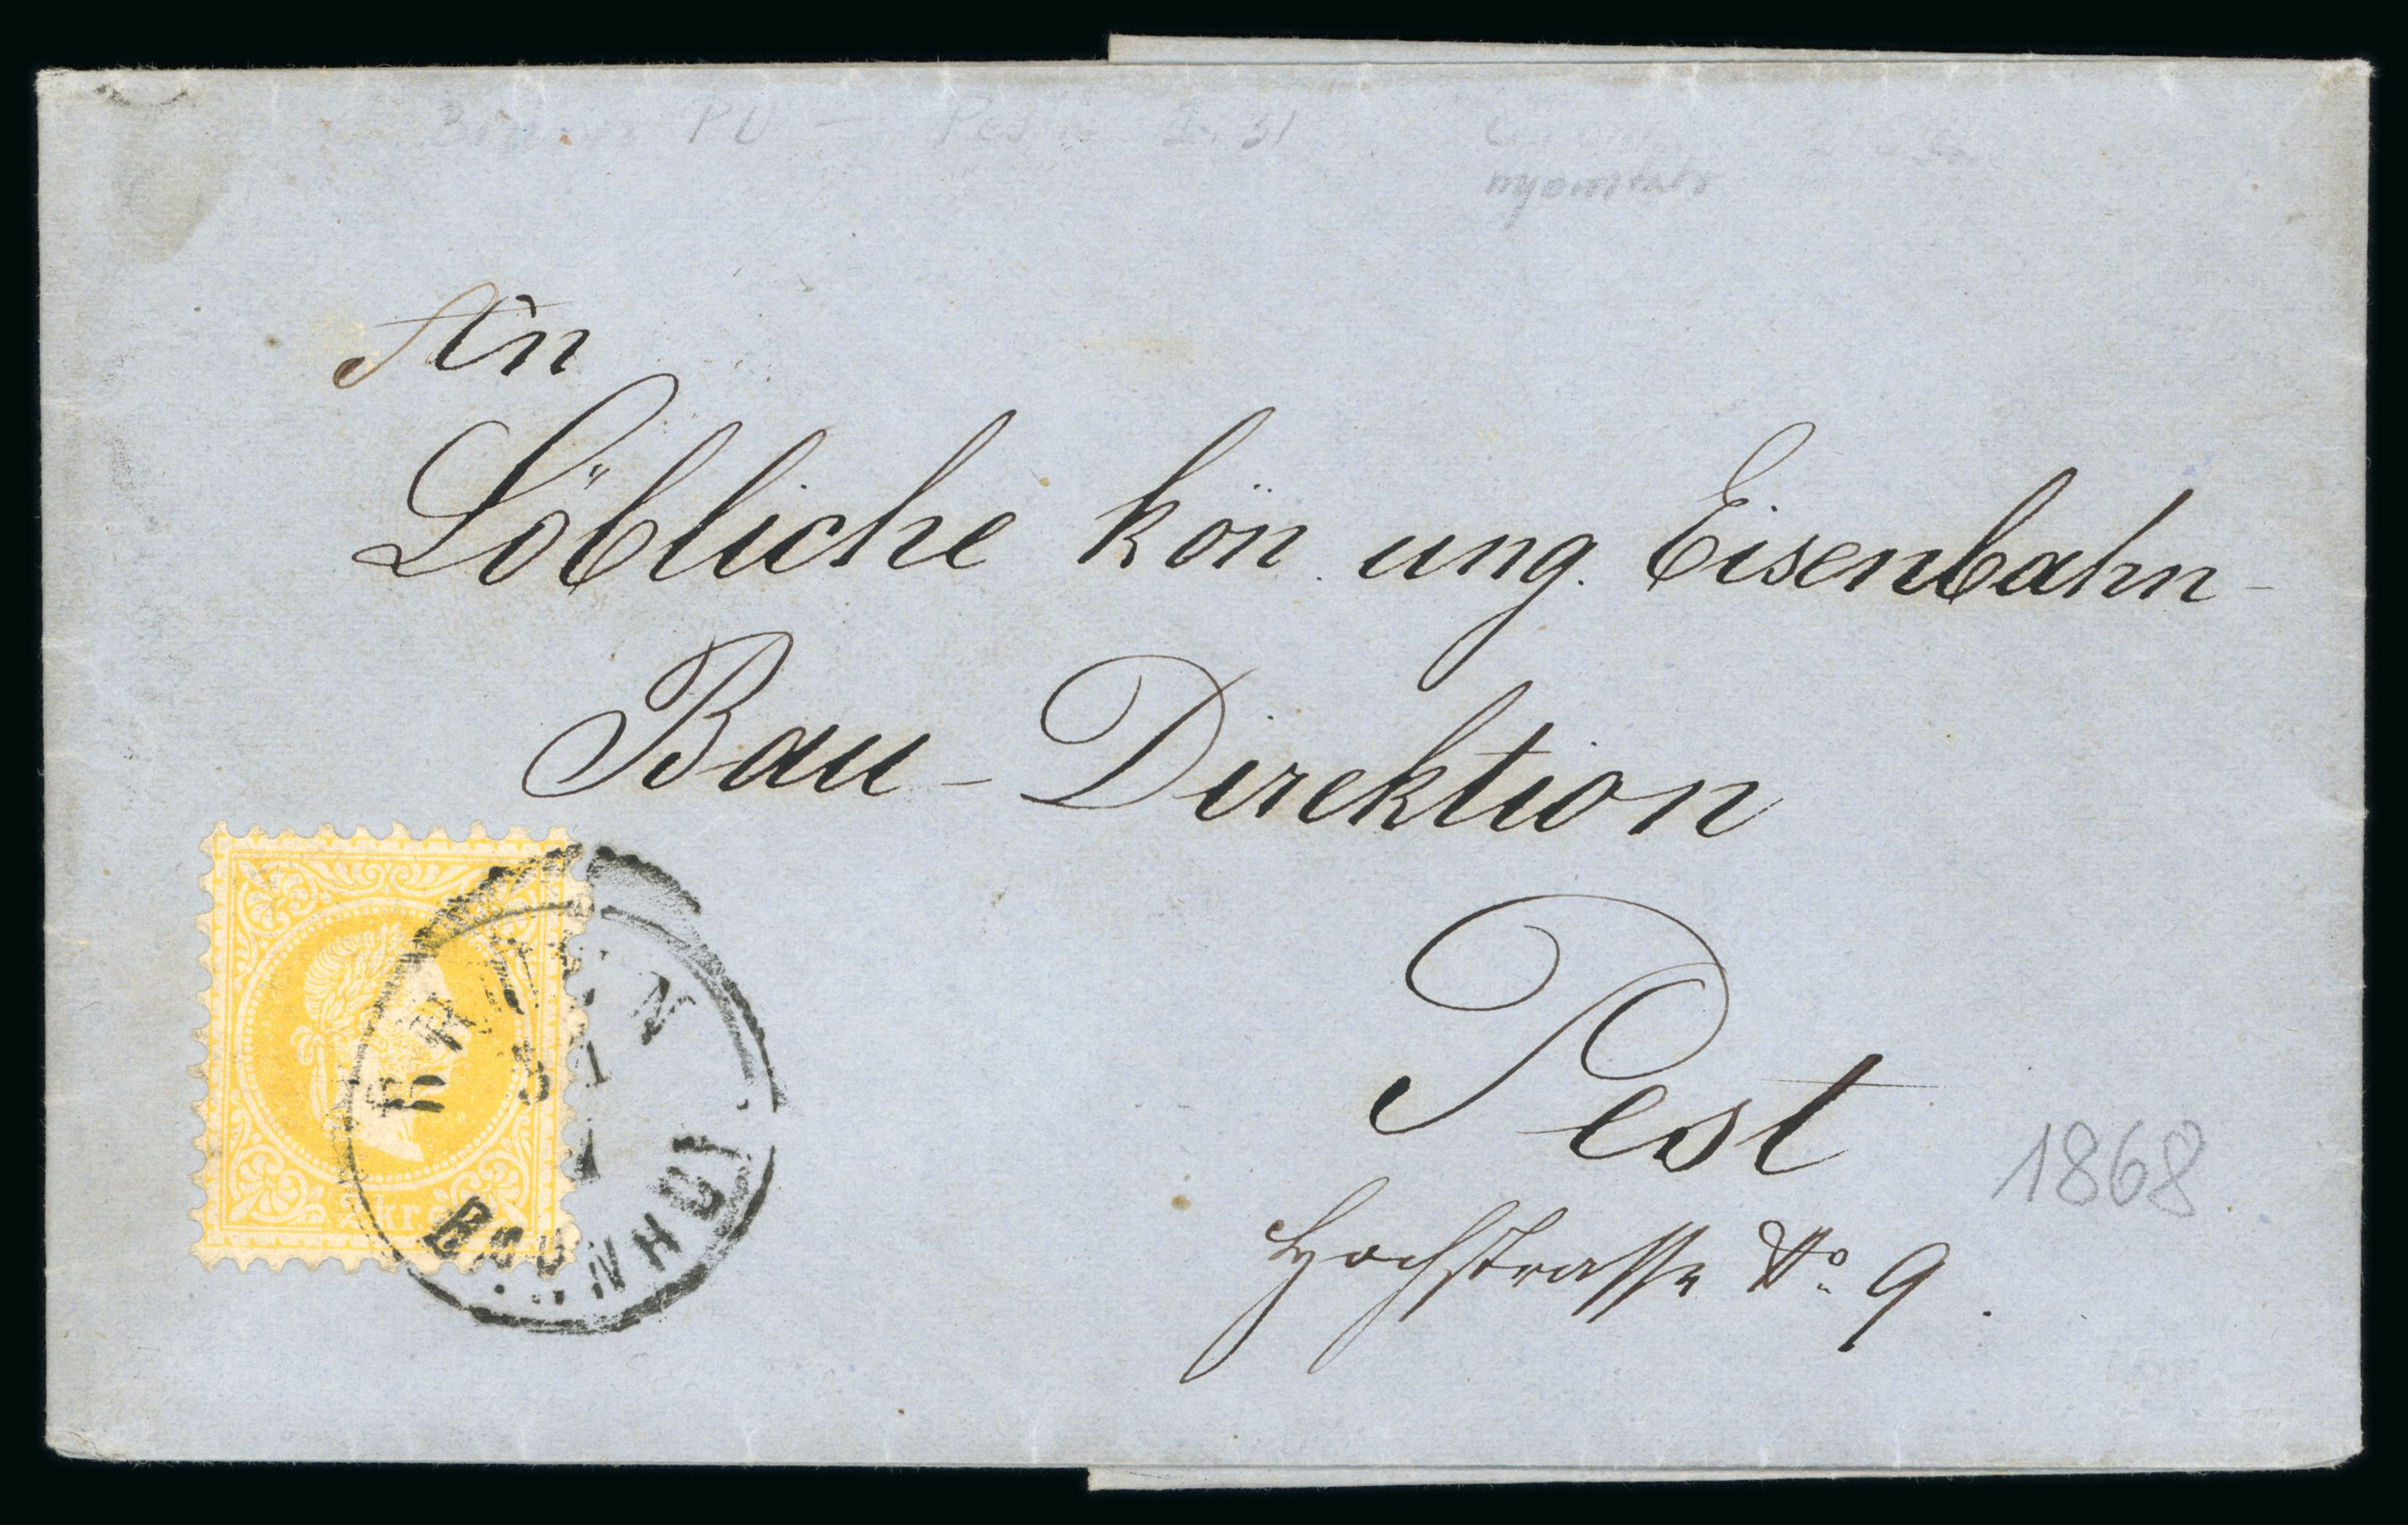 An
Löbliche kön. ung. Eisenbahn-
Bau-Direktion
Pest
Hochstrasse No. 9.
1868
BRÜNN
31
1
BAHNHOF
2 kr
PU — Pest
31
nyomtatv